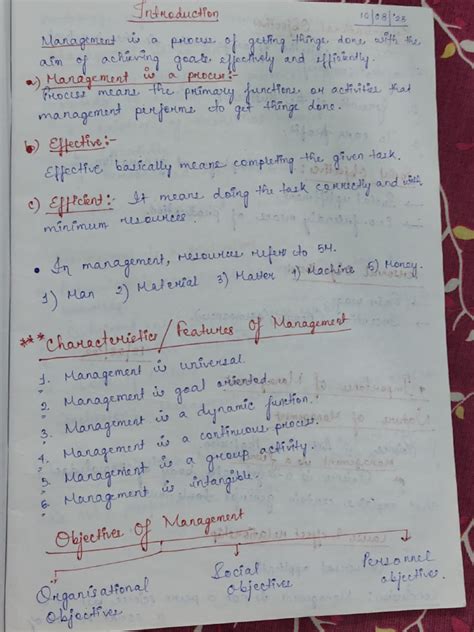 Introduction
10/08/'23
Management is a process of getting things done with the
aim of achieving goals effectively and efficiently.
a) Management is a process:-
Process means the primary functions or activities that
management performs to get things done.
b) Effective:-
Effective basically means completing the given task.
c) Efficient:- It means doing the task correctly and with
minimum resources.
• In management, resources refers to 5M.
1) Man 2) Material 3) Matter 4) Machine 5) Money.
** Characteristics / Features Of Management
1. Management is universal.
2. Management is goal oriented.
3. Management is a dynamic function.
4. Management is a continuous process.
5. Management is a group activity.
6. Management is intangible.
Objectives Of Management
Organisational Objectives
Social objectives
Personnel objectives.